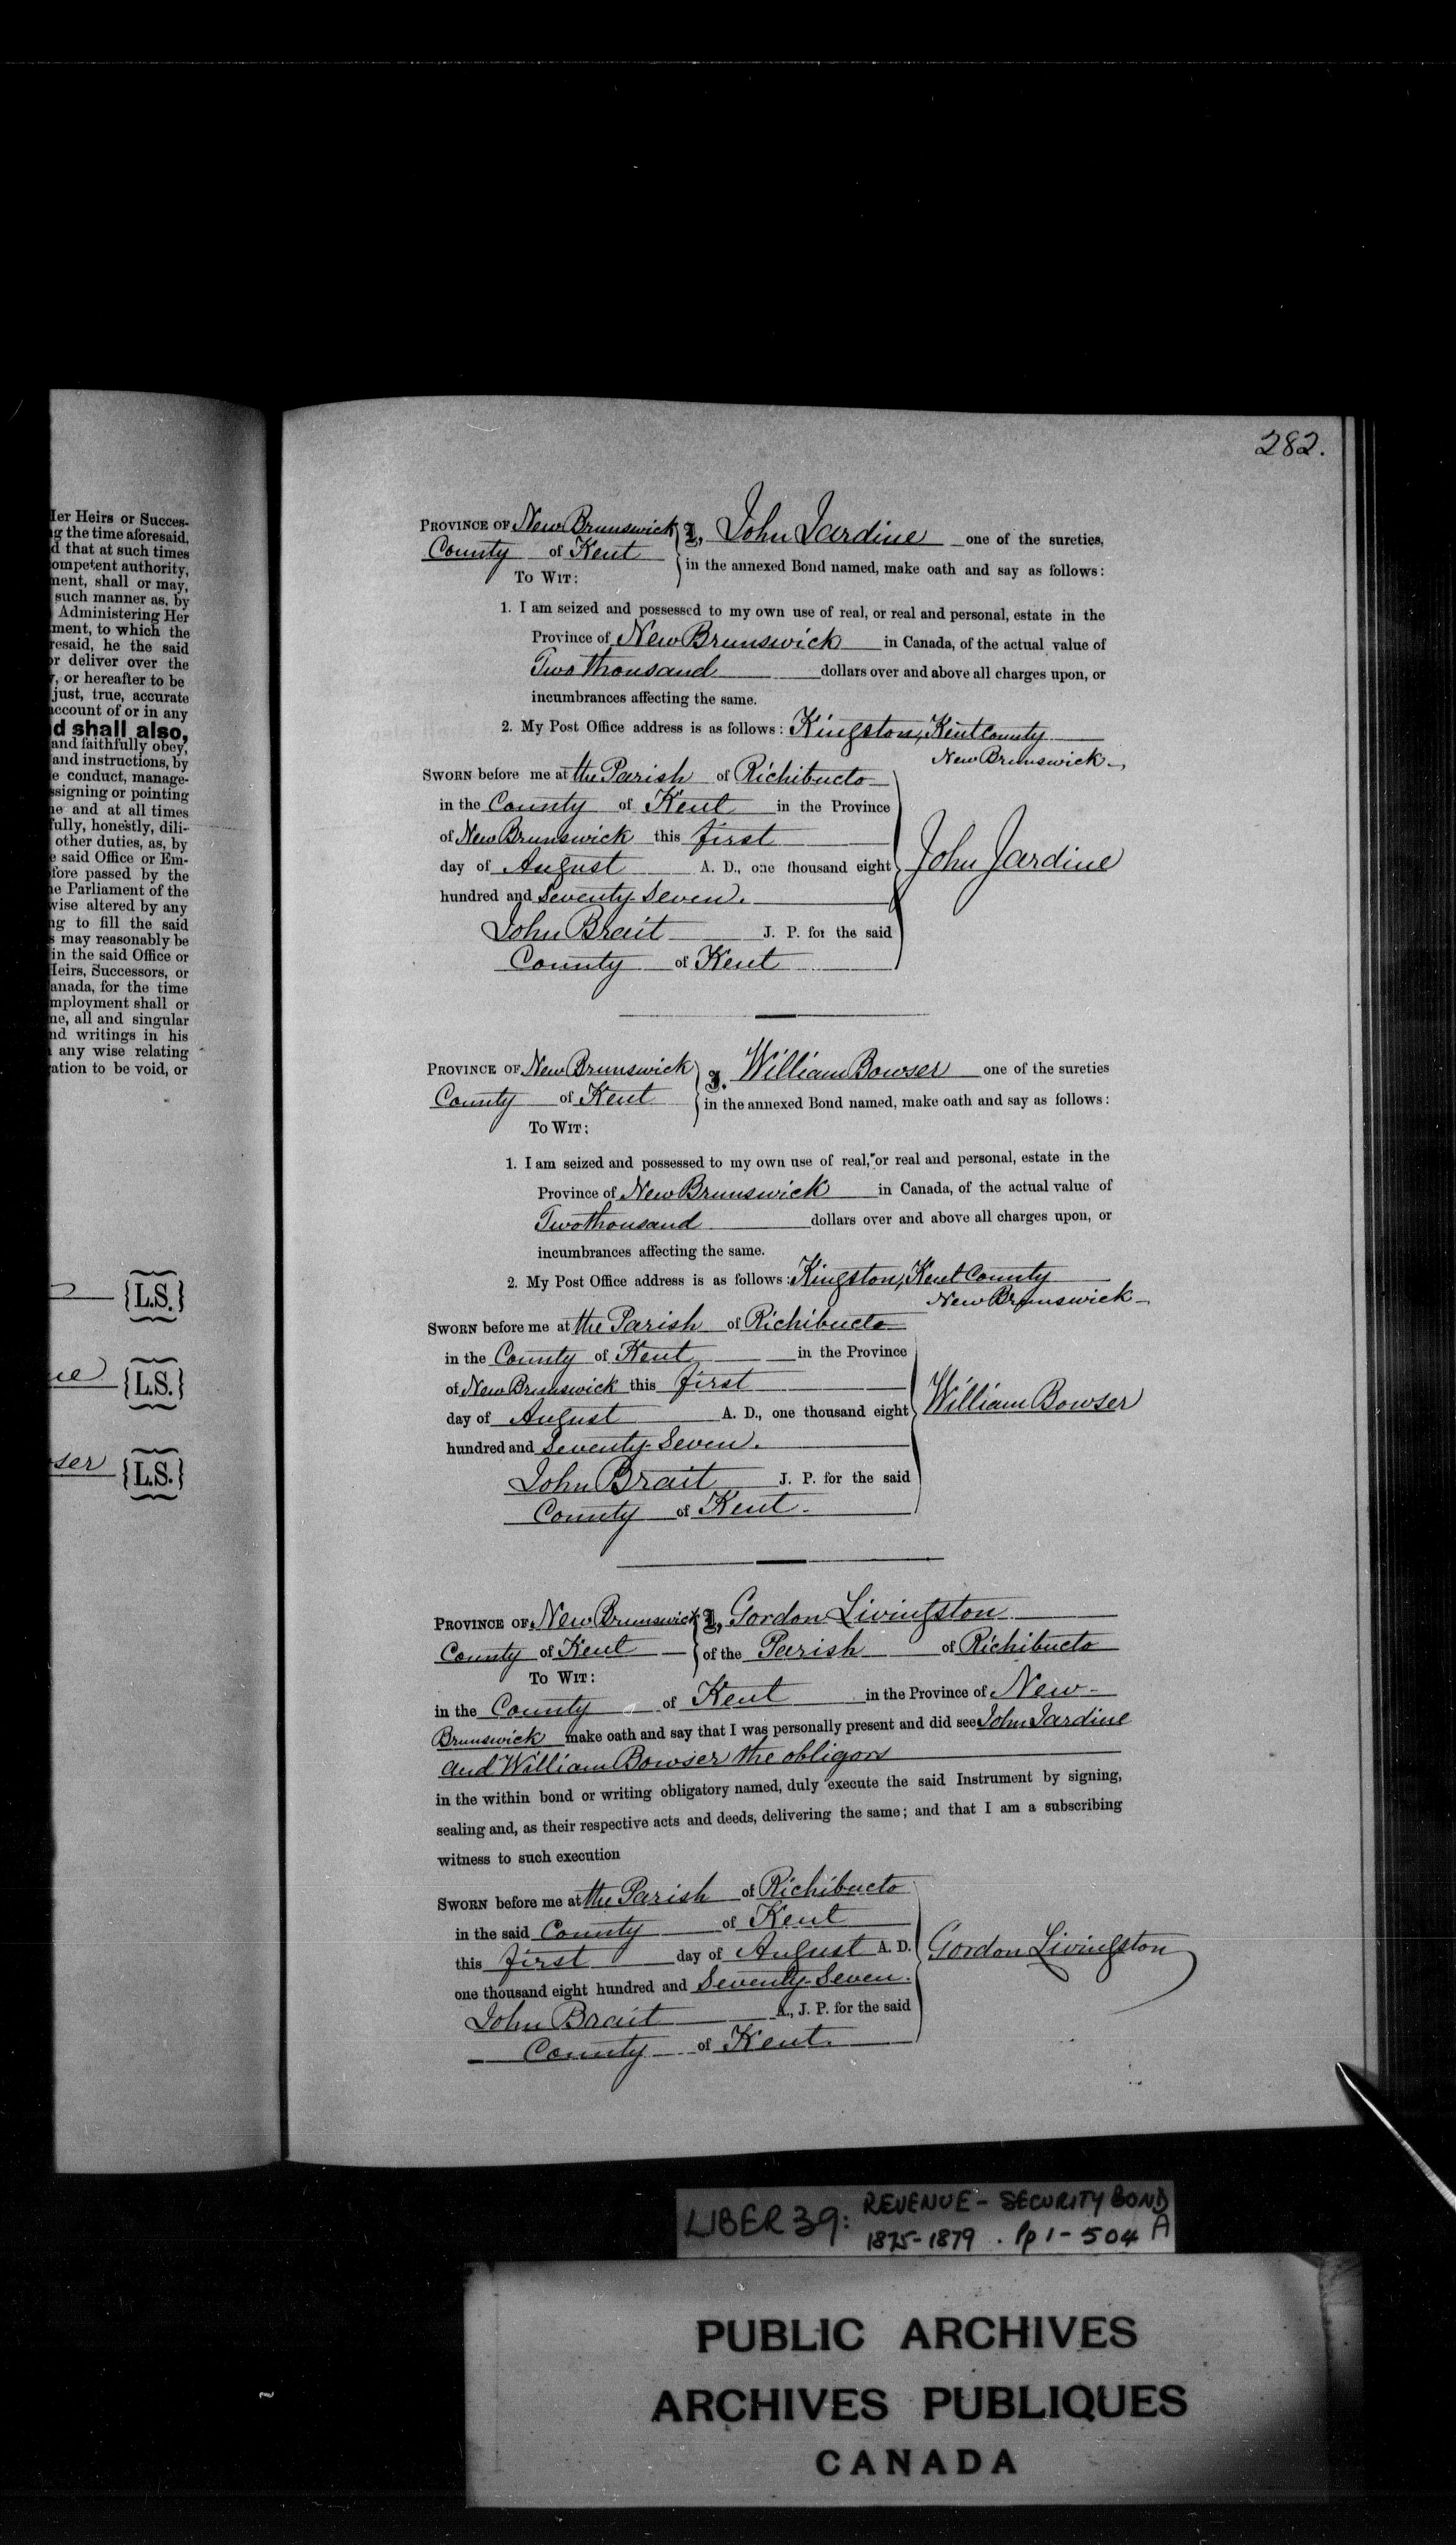 282.
ler Heirs or Succes-
g the time aforesaid,
d that at such times
ompetent authority,
ment, shall or may,
such manner as, by
Administering Her
ment, to which the
resaid, he the said
or deliver over the
, or hereafter to be
just, true, accurate
account of or in any
d shall also,
and faithfully obey,
and instructions, by
e conduct, manage-
ssigning or pointing
ne and at all times
fully, honestly, dili-
other duties, as, by
e said Office or Em-
fore passed by the
e Parliament of the
wise altered by any
ng to fill the said
s may reasonably be
in the said Office or
Heirs, Successors, or
anada, for the time
mployment shall or
ne, all and singular
nd writings in his
any wise relating
ation to be void, or
{L.S.}
ne {L.S.}
ser {L.S.}
PROVINCE OF New Brunswick } I, John Jardine one of the sureties,
County of Kent } in the annexed Bond named, make oath and say as follows:
TO WIT:
1. I am seized and possessed to my own use of real, or real and personal, estate in the
Province of New Brunswick in Canada, of the actual value of
Two thousand dollars over and above all charges upon, or
incumbrances affecting the same.
2. My Post Office address is as follows: Kingston, Kent County
New Brunswick
SWORN before me at the Parish of Richibucto
in the County of Kent in the Province
of New Brunswick this first
day of August A. D., one thousand eight
hundred and Seventy-Seven.
John Jardine
John Brait J. P. for the said
County of Kent
PROVINCE OF New Brunswick } I, William Bowser one of the sureties
County of Kent } in the annexed Bond named, make oath and say as follows:
TO WIT:
1. I am seized and possessed to my own use of real, or real and personal, estate in the
Province of New Brunswick in Canada, of the actual value of
Two thousand dollars over and above all charges upon, or
incumbrances affecting the same.
2. My Post Office address is as follows: Kingston, Kent County
New Brunswick
SWORN before me at the Parish of Richibucto
in the County of Kent in the Province
of New Brunswick this first
day of August A. D., one thousand eight
hundred and Seventy-Seven.
William Bowser
John Brait J. P. for the said
County of Kent.
PROVINCE OF New Brunswick } I, Gordon Livingston
County of Kent } of the Parish of Richibucto
TO WIT:
in the County of Kent in the Province of New-
Brunswick make oath and say that I was personally present and did see John Jardine
and William Bowser the obligors
in the within bond or writing obligatory named, duly execute the said Instrument by signing,
sealing and, as their respective acts and deeds, delivering the same; and that I am a subscribing
witness to such execution
SWORN before me at the Parish of Richibucto
in the said County of Kent
this first day of August A. D.
one thousand eight hundred and Seventy-Seven.
Gordon Livingston
John Brait A., J. P. for the said
County of Kent.
LIBER 39: REVENUE - SECURITY BOND
1875-1879 . Pp 1 - 504 A
PUBLIC ARCHIVES
ARCHIVES PUBLIQUES
CANADA